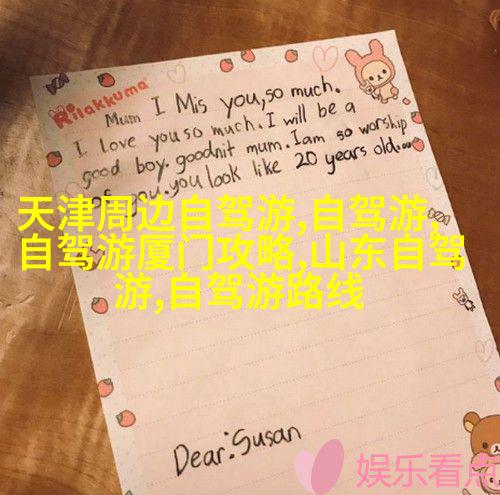 Rilakkuma
Mum I Mis you,so much.
I love you so much.I will be a
good boy.goodnit mum.Iam so worship
of you.you look like 20 years old.
天津周边自驾游,自驾游,
自驾游厦门攻略,山东自驾
游,自驾游路线
Dear:Susan
娱乐看点